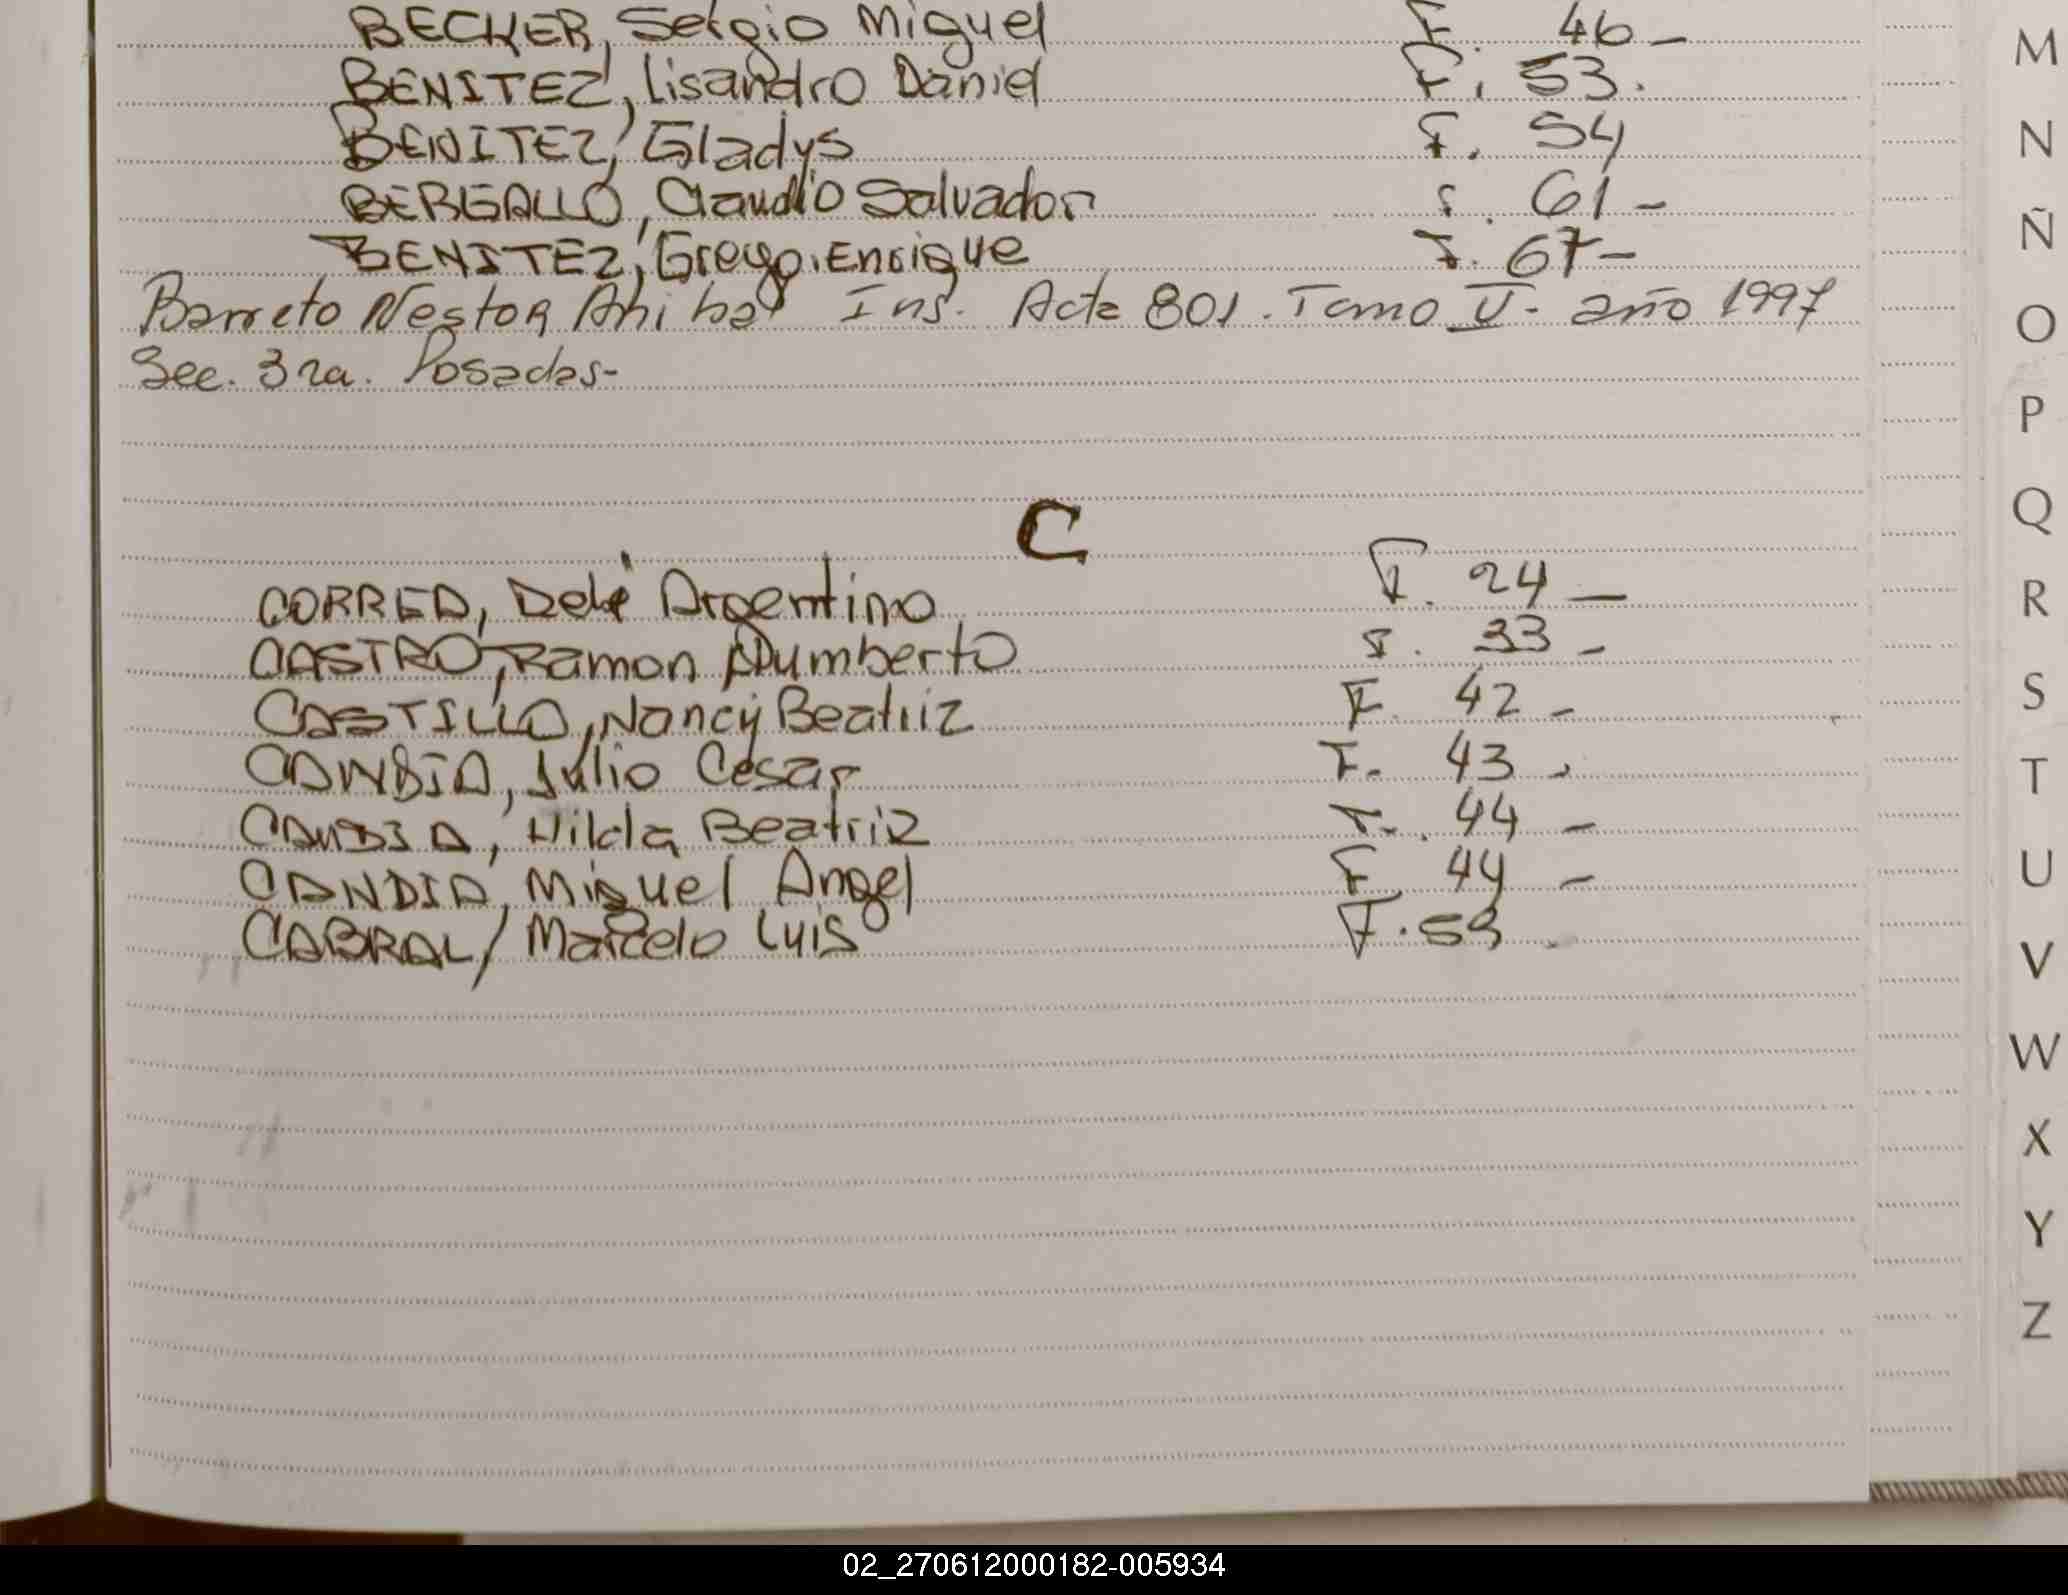 BECKER, Sergio Miguel F. 46-
BENITEZ, Lisandro Daniel F. 53.
BENITEZ, Gladys F. 54
BERGALLO, Claudio Salvador F. 61-
BENITEZ, Enrique F. 67-
Barreto Nestor Ins. Acta 801. Tomo V. año 1997
Sec. 3ra. Posadas-
C
CORREA, Argentino F. 24-
CASTRO, Ramon Humberto F. 33-
CASTILLO, Nancy Beatriz F. 42-
CANDIA, Julio Cesar F. 43-
CANDIA, Hilda Beatriz F. 44-
CANDIA, Miguel Angel F. 44-
CABRAL, Marcelo Luis F. 59
M
N
Ñ
O
P
Q
R
S
T
U
V
W
X
Y
Z
02_270612000182-005934